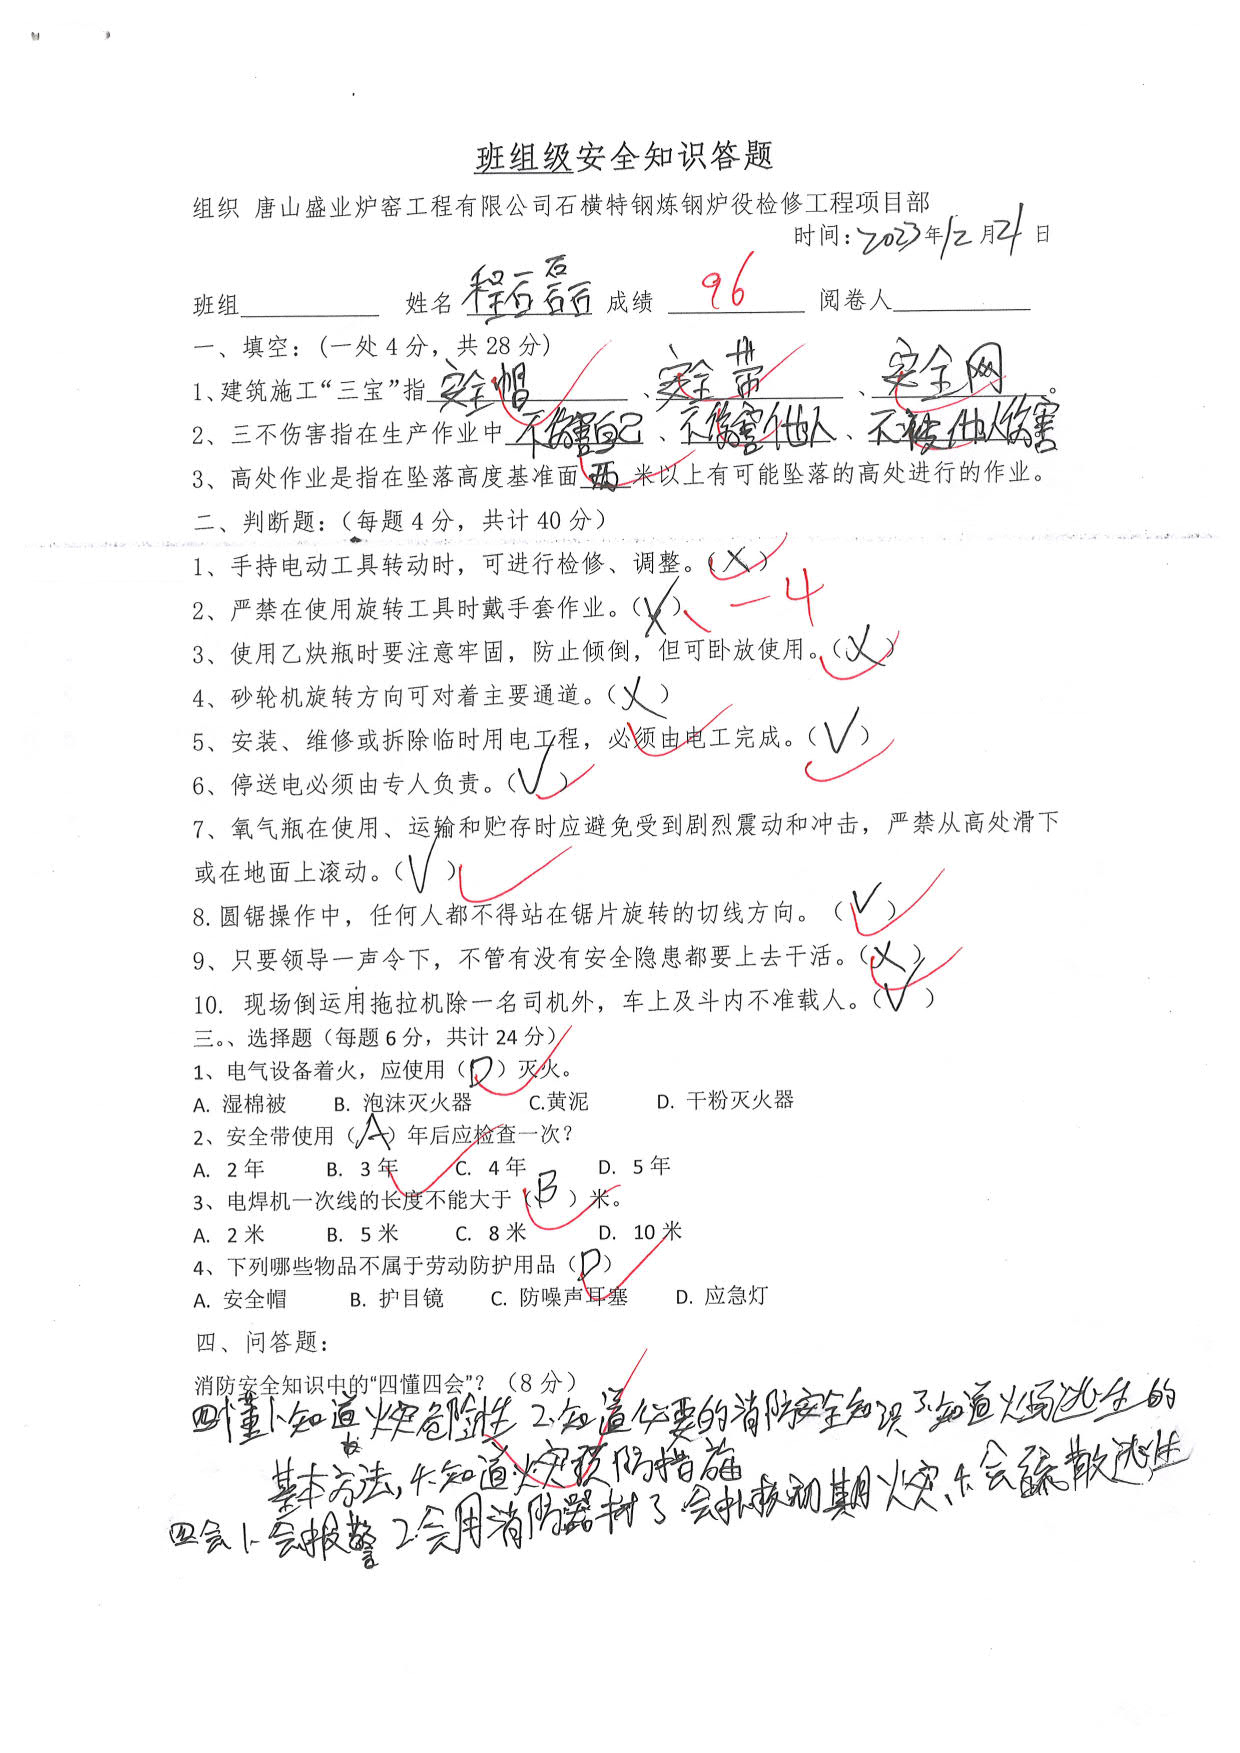 班组级安全知识答题
组织 唐山盛业炉窑工程有限公司石横特钢炼钢炉役检修工程项目部
时间：2023年12月21日
班组 姓名 程磊 成绩 96 阅卷人
一、填空：(一处4分，共28分)
1、建筑施工“三宝”指 安全帽 、安全带 、安全网 。
2、三不伤害指在生产作业中 不伤害自己 、不伤害他人、不被他人伤害
3、高处作业是指在坠落高度基准面 两 米以上有可能坠落的高处进行的作业。
二、判断题：（每题4分，共计40分）
1、手持电动工具转动时，可进行检修、调整。（X）
2、严禁在使用旋转工具时戴手套作业。（X） -4
3、使用乙炔瓶时要注意牢固，防止倾倒，但可卧放使用。（X）
4、砂轮机旋转方向可对着主要通道。（X）
5、安装、维修或拆除临时用电工程，必须由电工完成。（√）
6、停送电必须由专人负责。（√）
7、氧气瓶在使用、运输和贮存时应避免受到剧烈震动和冲击，严禁从高处滑下
或在地面上滚动。（√）
8.圆锯操作中，任何人都不得站在锯片旋转的切线方向。（√）
9、只要领导一声令下，不管有没有安全隐患都要上去干活。（X）
10. 现场倒运用拖拉机除一名司机外，车上及斗内不准载人。（√）
三。、选择题（每题6分，共计24分）
1、电气设备着火，应使用（D）灭火。
A. 湿棉被 B. 泡沫灭火器 C.黄泥 D. 干粉灭火器
2、安全带使用（A）年后应检查一次？
A. 2年 B. 3年 C. 4年 D. 5年
3、电焊机一次线的长度不能大于（B）米。
A. 2米 B. 5米 C. 8米 D. 10米
4、下列哪些物品不属于劳动防护用品（D）
A. 安全帽 B. 护目镜 C. 防噪声耳塞 D. 应急灯
四、问答题：
消防安全知识中的“四懂四会”？（8分）
四懂1、知道火灾危险性 2.知道必要的消防安全知识 3.知道火场逃生的
基本方法，4.知道火灾预防措施
四会1、会报警 2.会用消防器材 3.会扑救初期火灾、4.会疏散逃生